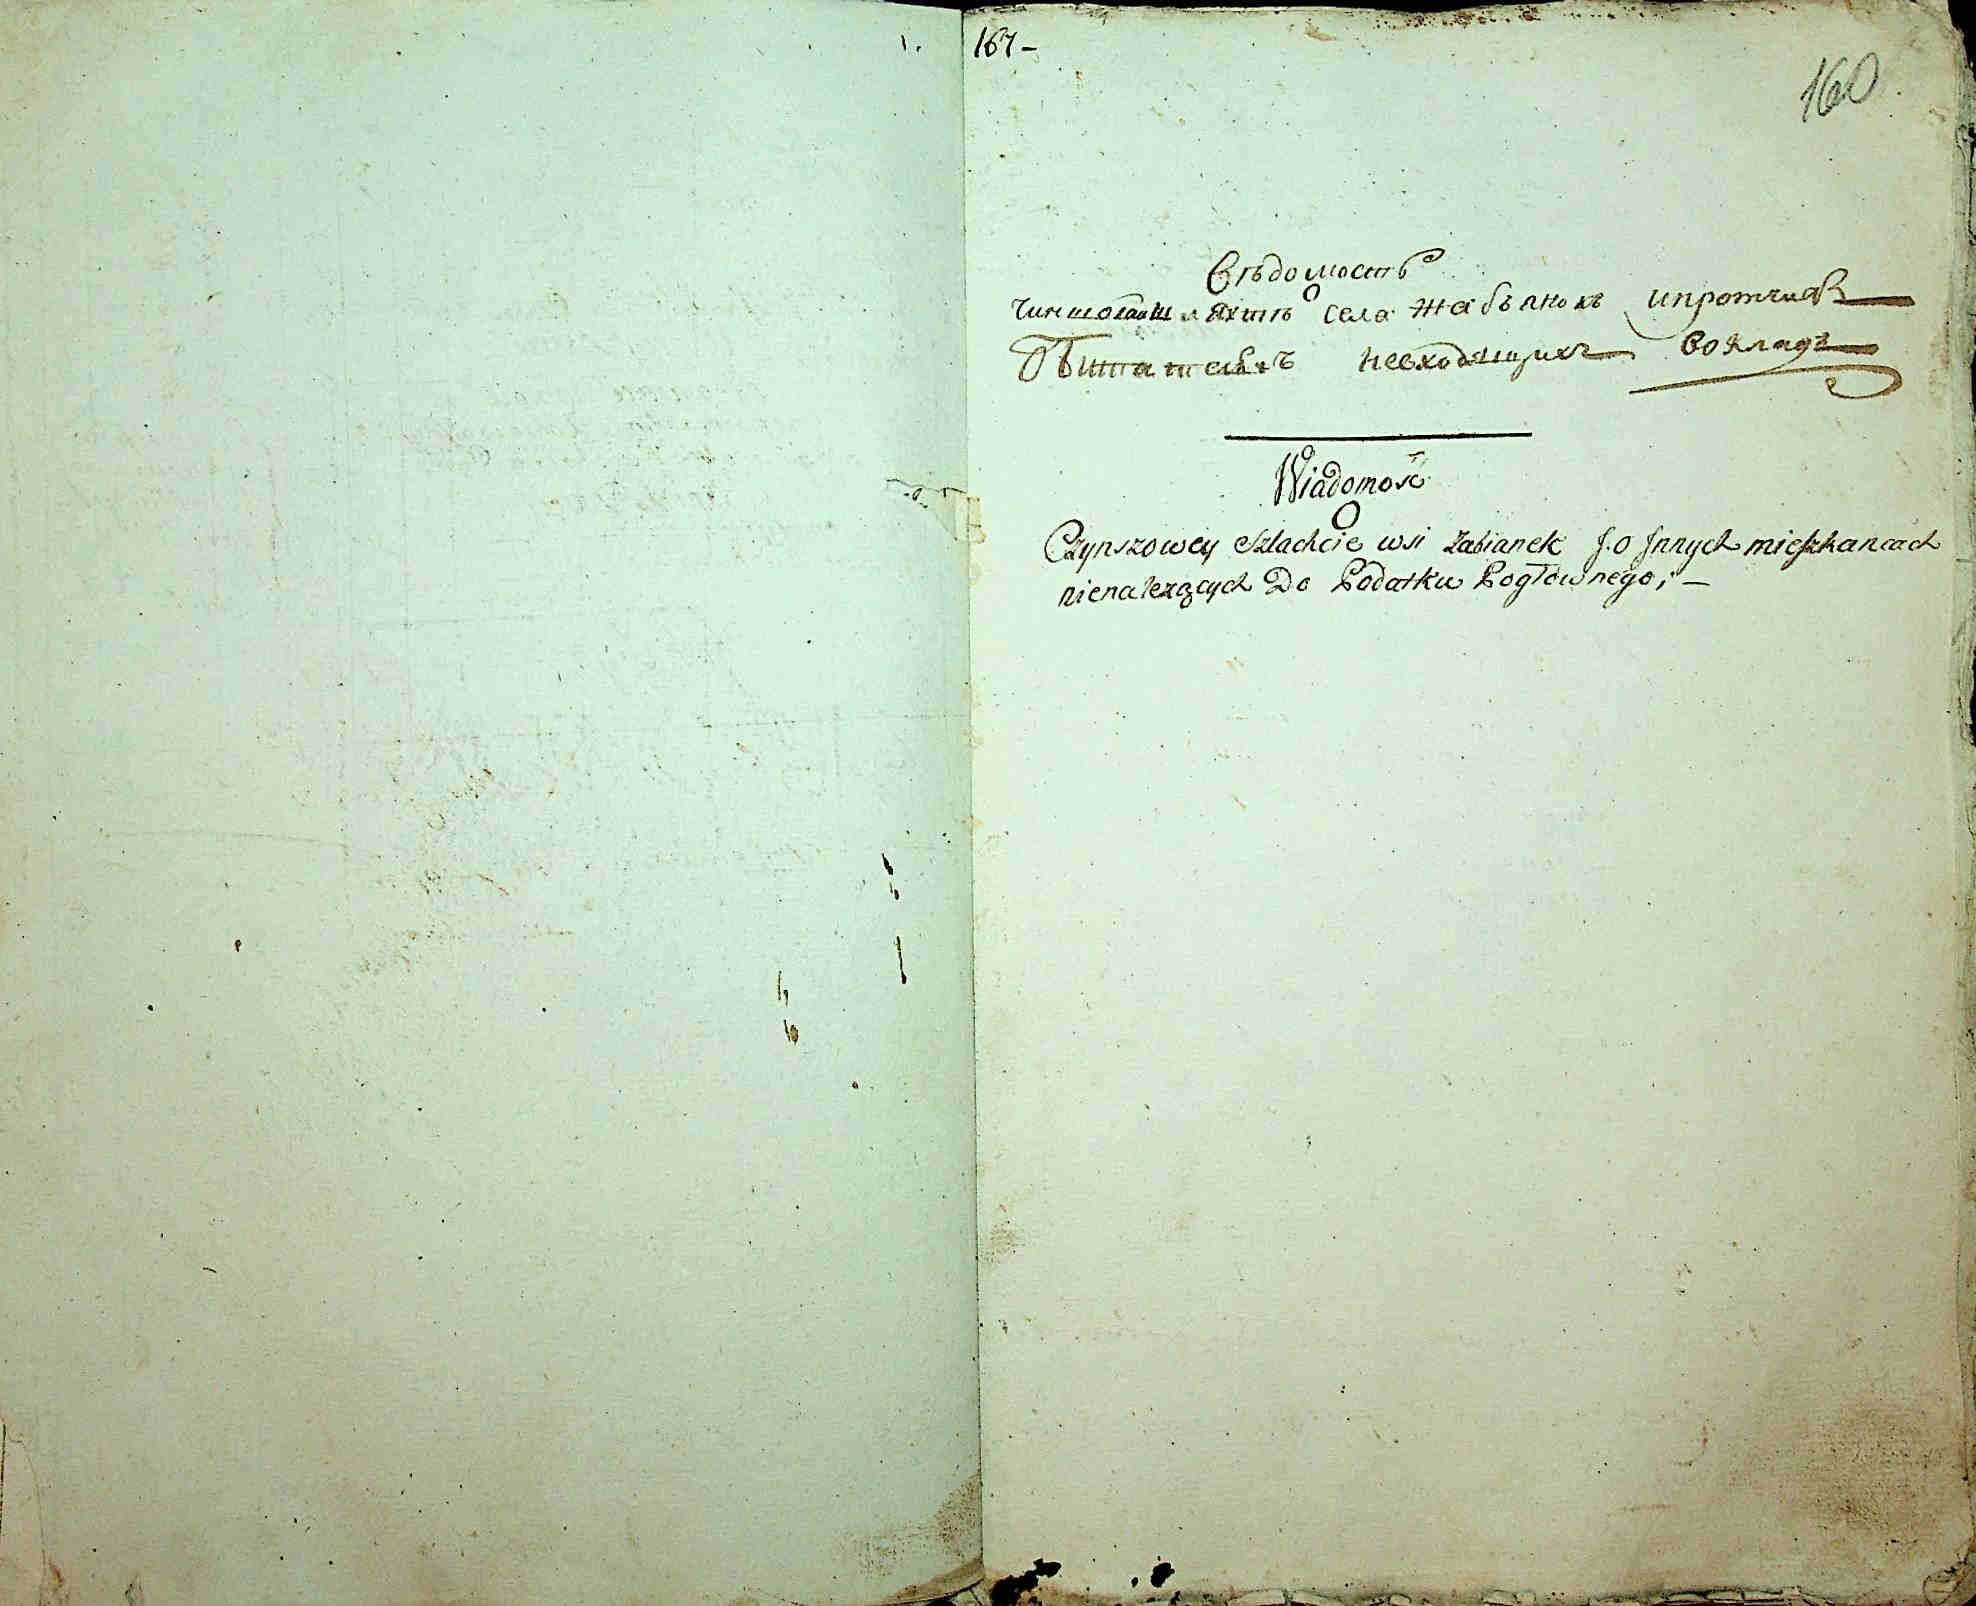 167-
160
Вѣдомость
О
села Жабьянокъ и протчихъ
Обитателѣхъ невходящихъ вокладъ
Wiadomość
O
Czynszowey Szlachcie wsi Zabianek J. o Jnnych mieszkancach
nienależących Do Podatku Pogłownego;—